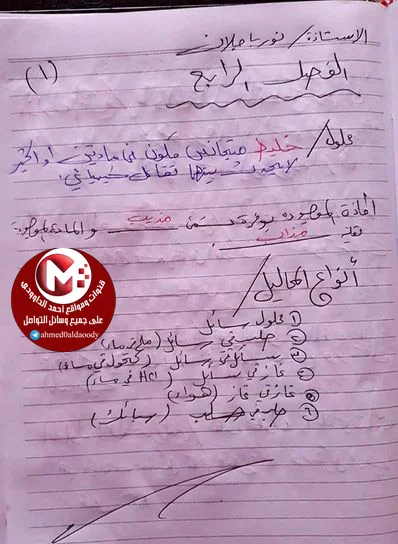 الاستاذة / نور باجلان
(١)
الفصل الرابع
محلول / خليط متجانس مكون من مادتين او اكثر
لا يحدث بينها تفاعل كيميائي.
المادة الموجودة بوفرة تسمى مذيب والمادة الموجودة
بقلة مذاب.
أنواع المحاليل /
① محلول سائل
② صلب في سائل (ملح في ماء)
③ سائل في سائل (كحول في ماء)
④ غاز في سائل (HCl في ماء)
⑤ غاز في غاز (هواء)
⑥ صلب في صلب (سبائك)
قنوات ومواقع احمد الداوودي
على جميع وسائل التواصل
@ahmed0aldaoody